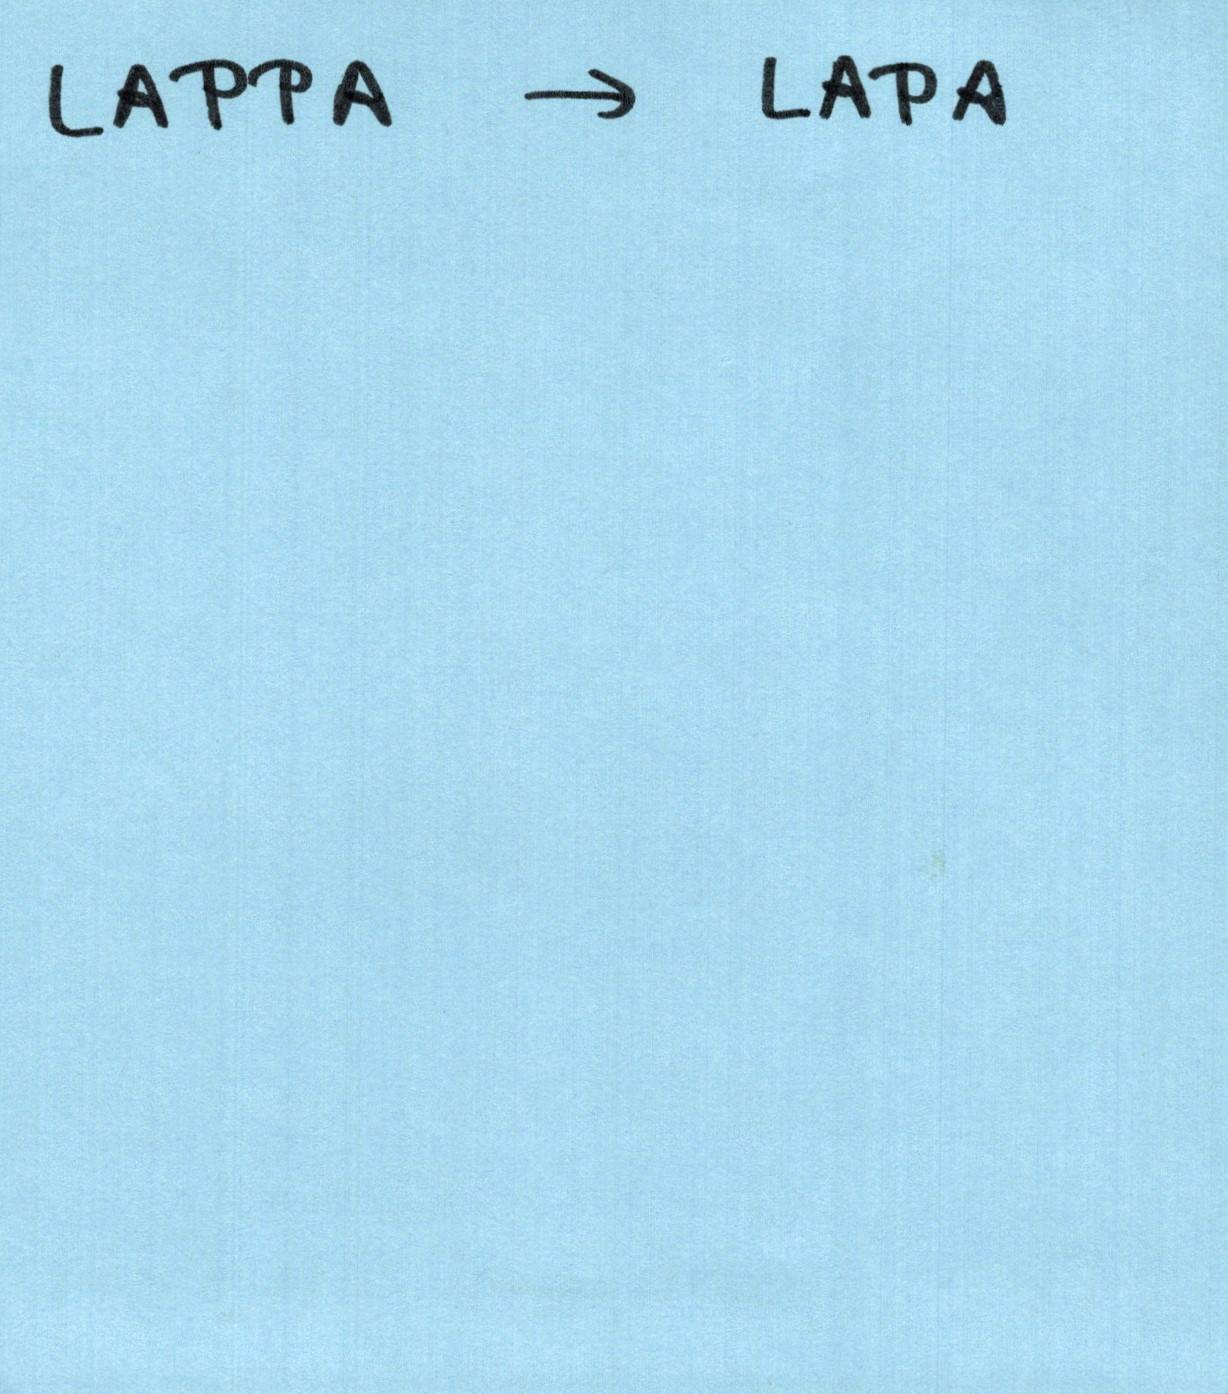 LAPPA → LAPA